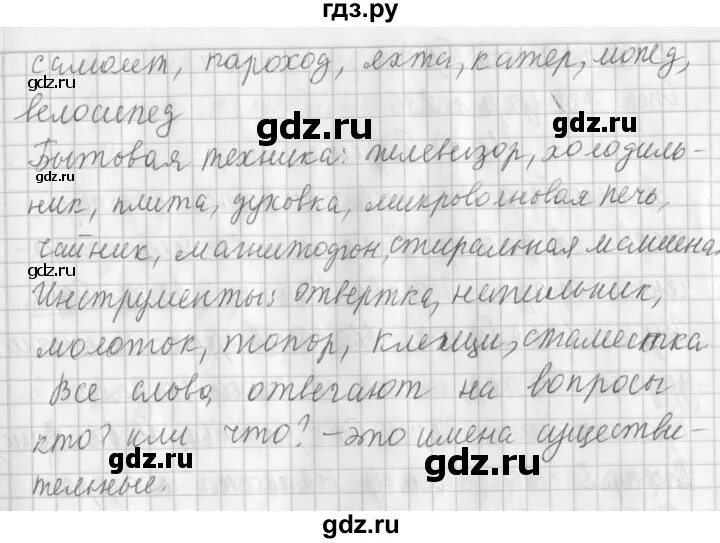 гдз.ру
самолет, пароход, яхта, катер, мопед,
велосипед
Бытовая техника: телевизор, холодиль-
ник, плита, духовка, микроволновая печь,
чайник, магнитофон, стиральная машина.
Инструменты: отвертка, напильник,
молоток, топор, клещи, стамеска.
Все слова отвечают на вопросы
кто? или что? – это имена существи-
тельные.
gdz.ru
gdz.ru
gdz.ru
gdz.ru
gdz.ru
gdz.ru
gdz.ru
gdz.ru
gdz.ru
gdz.ru